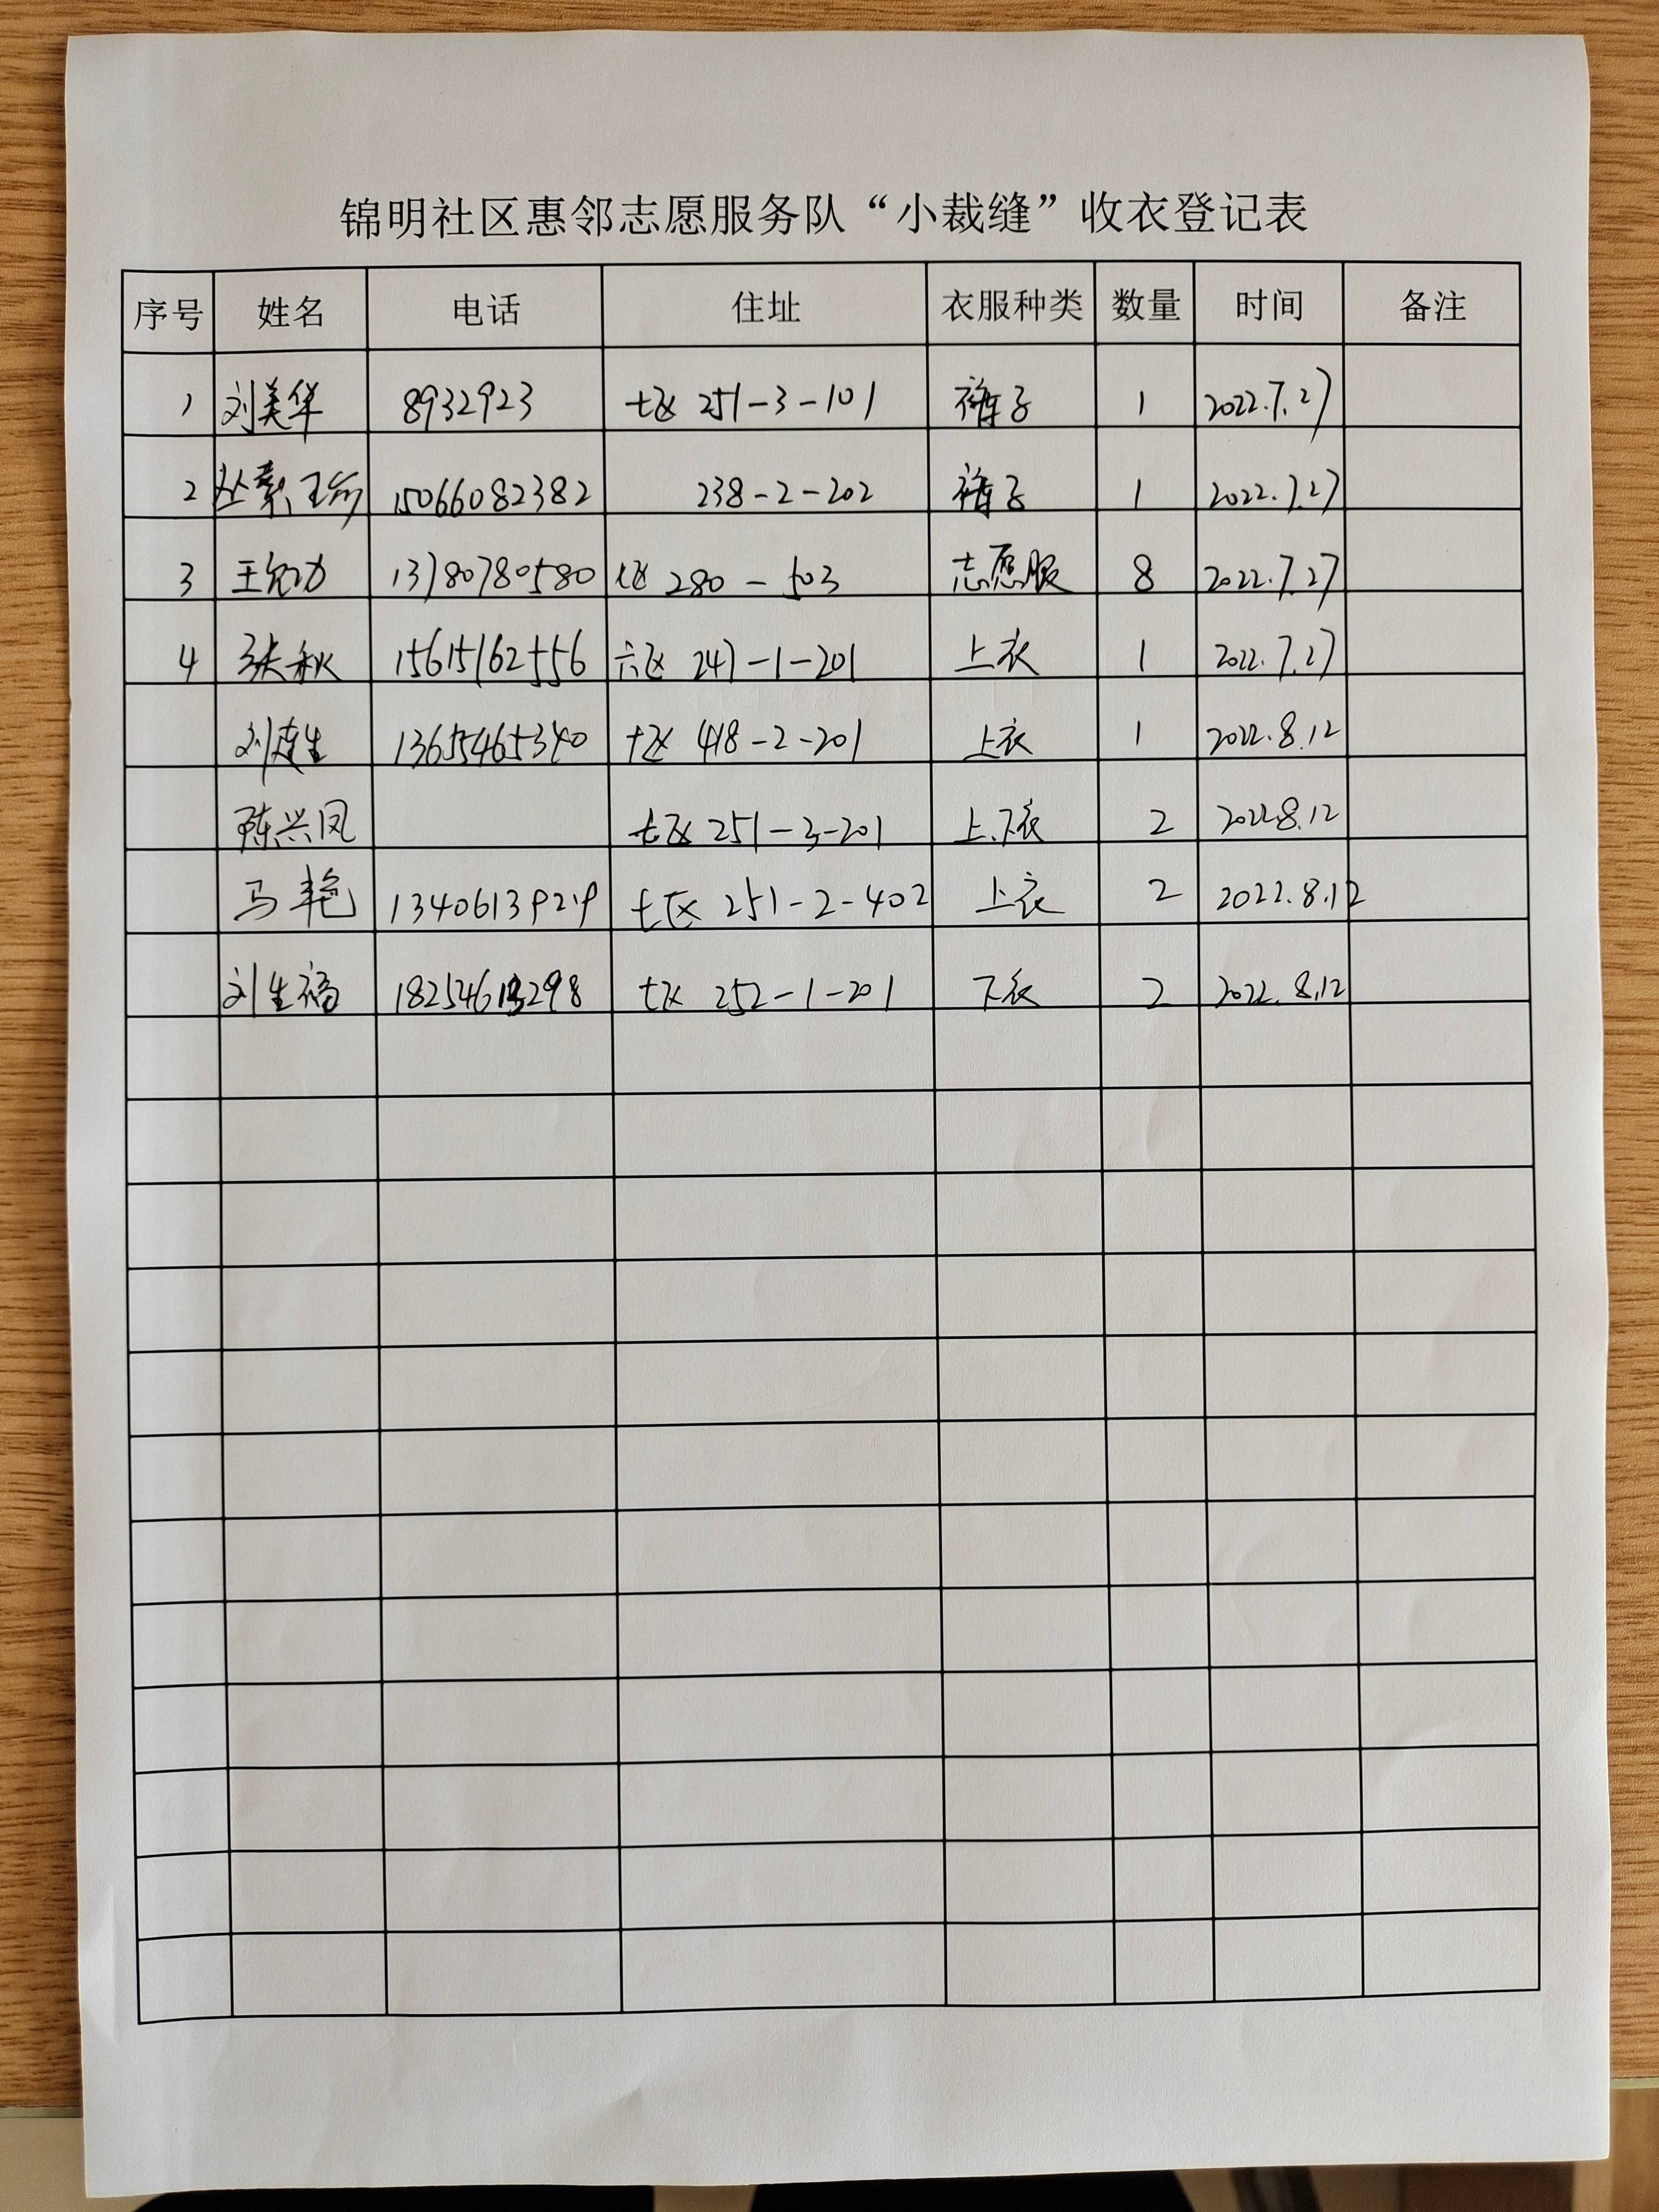 锦明社区惠邻志愿服务队“小裁缝”收衣登记表
序号 姓名 电话 住址 衣服种类 数量 时间 备注
1 刘美华 8932923 七区 251-3-101 裤子 1 2022.7.27
2 15066082382 238-2-202 裤子 1 2022.7.27
3 王 13780780580 七区 280-503 志愿服 8 2022.7.27
4 张秋 15615162556 六区 247-1-201 上衣 1 2022.7.27
刘连生 13655465340 七区 418-2-201 上衣 1 2022.8.12
陈兴凤 七区 251-3-201 上.下衣 2 2022.8.12
马艳 13406139219 七区 251-2-402 上衣 2 2022.8.12
刘生福 18254613298 七区 252-1-201 下衣 2 2022.8.12